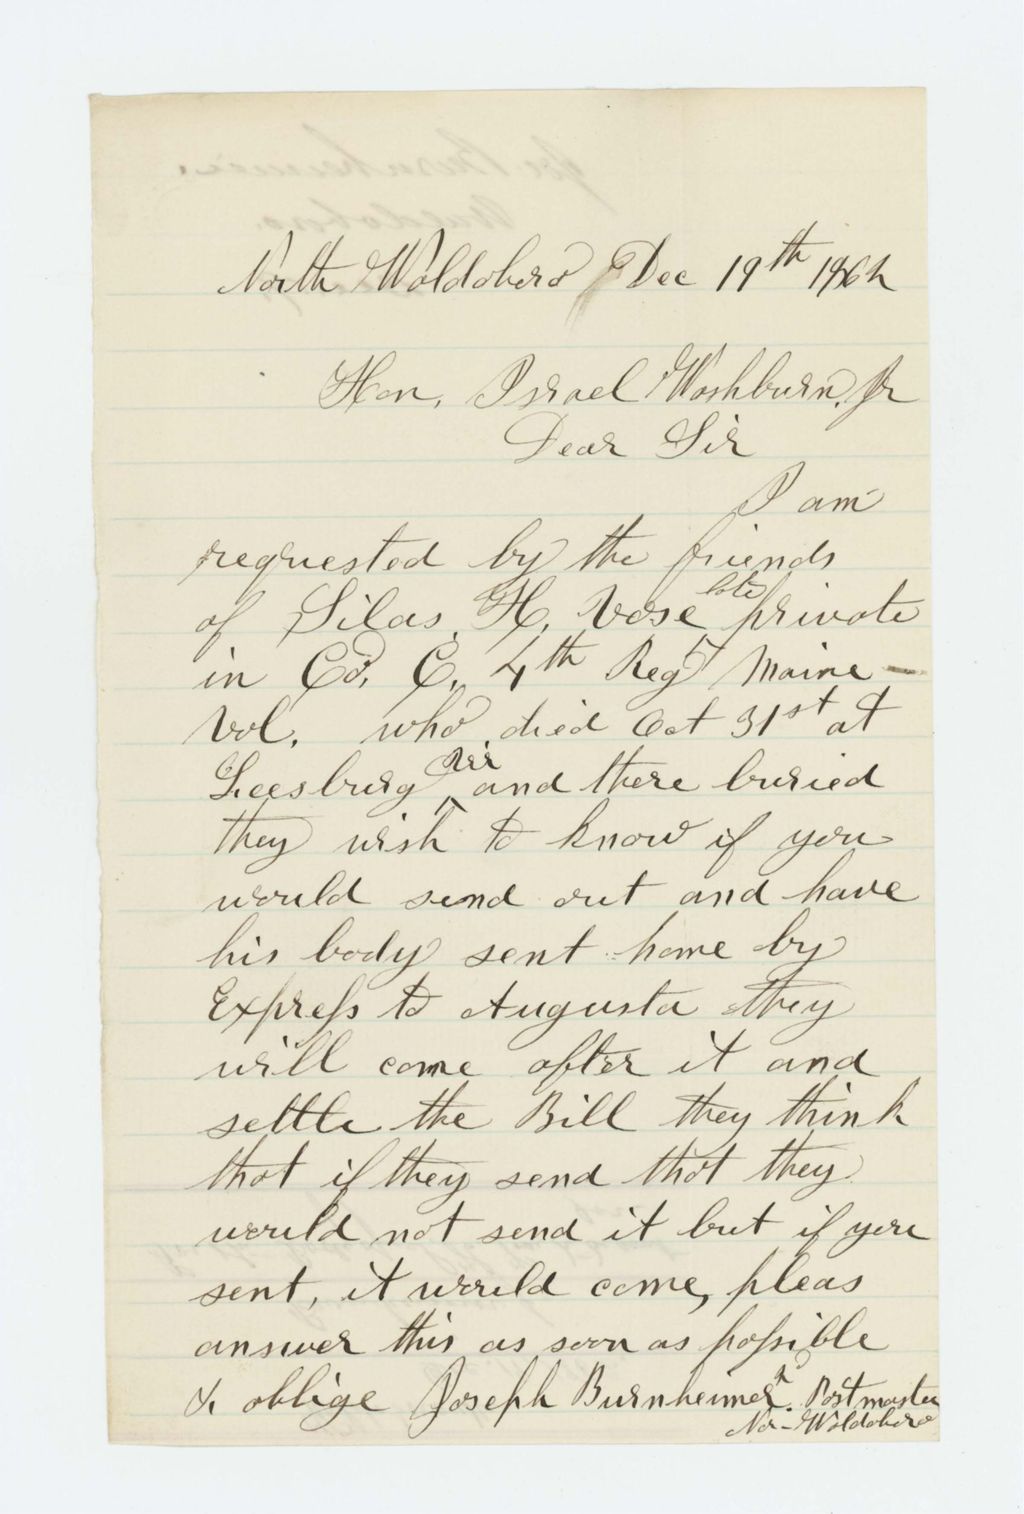 North Waldoboro Dec 19th 1862
Hon. Israel Washburn, Jr
Dear Sir
I am
requested by the friends
of Silas H. Vose late private
in Co. C. 4th Regt Maine
Vol. who died Oct 31st at
Leesburg Vir and there buried
they wish to know if you
would send out and have
his body sent home by
Express to Augusta they
will come after it and
settle the Bill they think
that if they send that they
would not send it but if you
sent, it would come, pleas
answer this as soon as possible
& oblige Joseph Burnheimer. Postmaster
No- Waldoboro